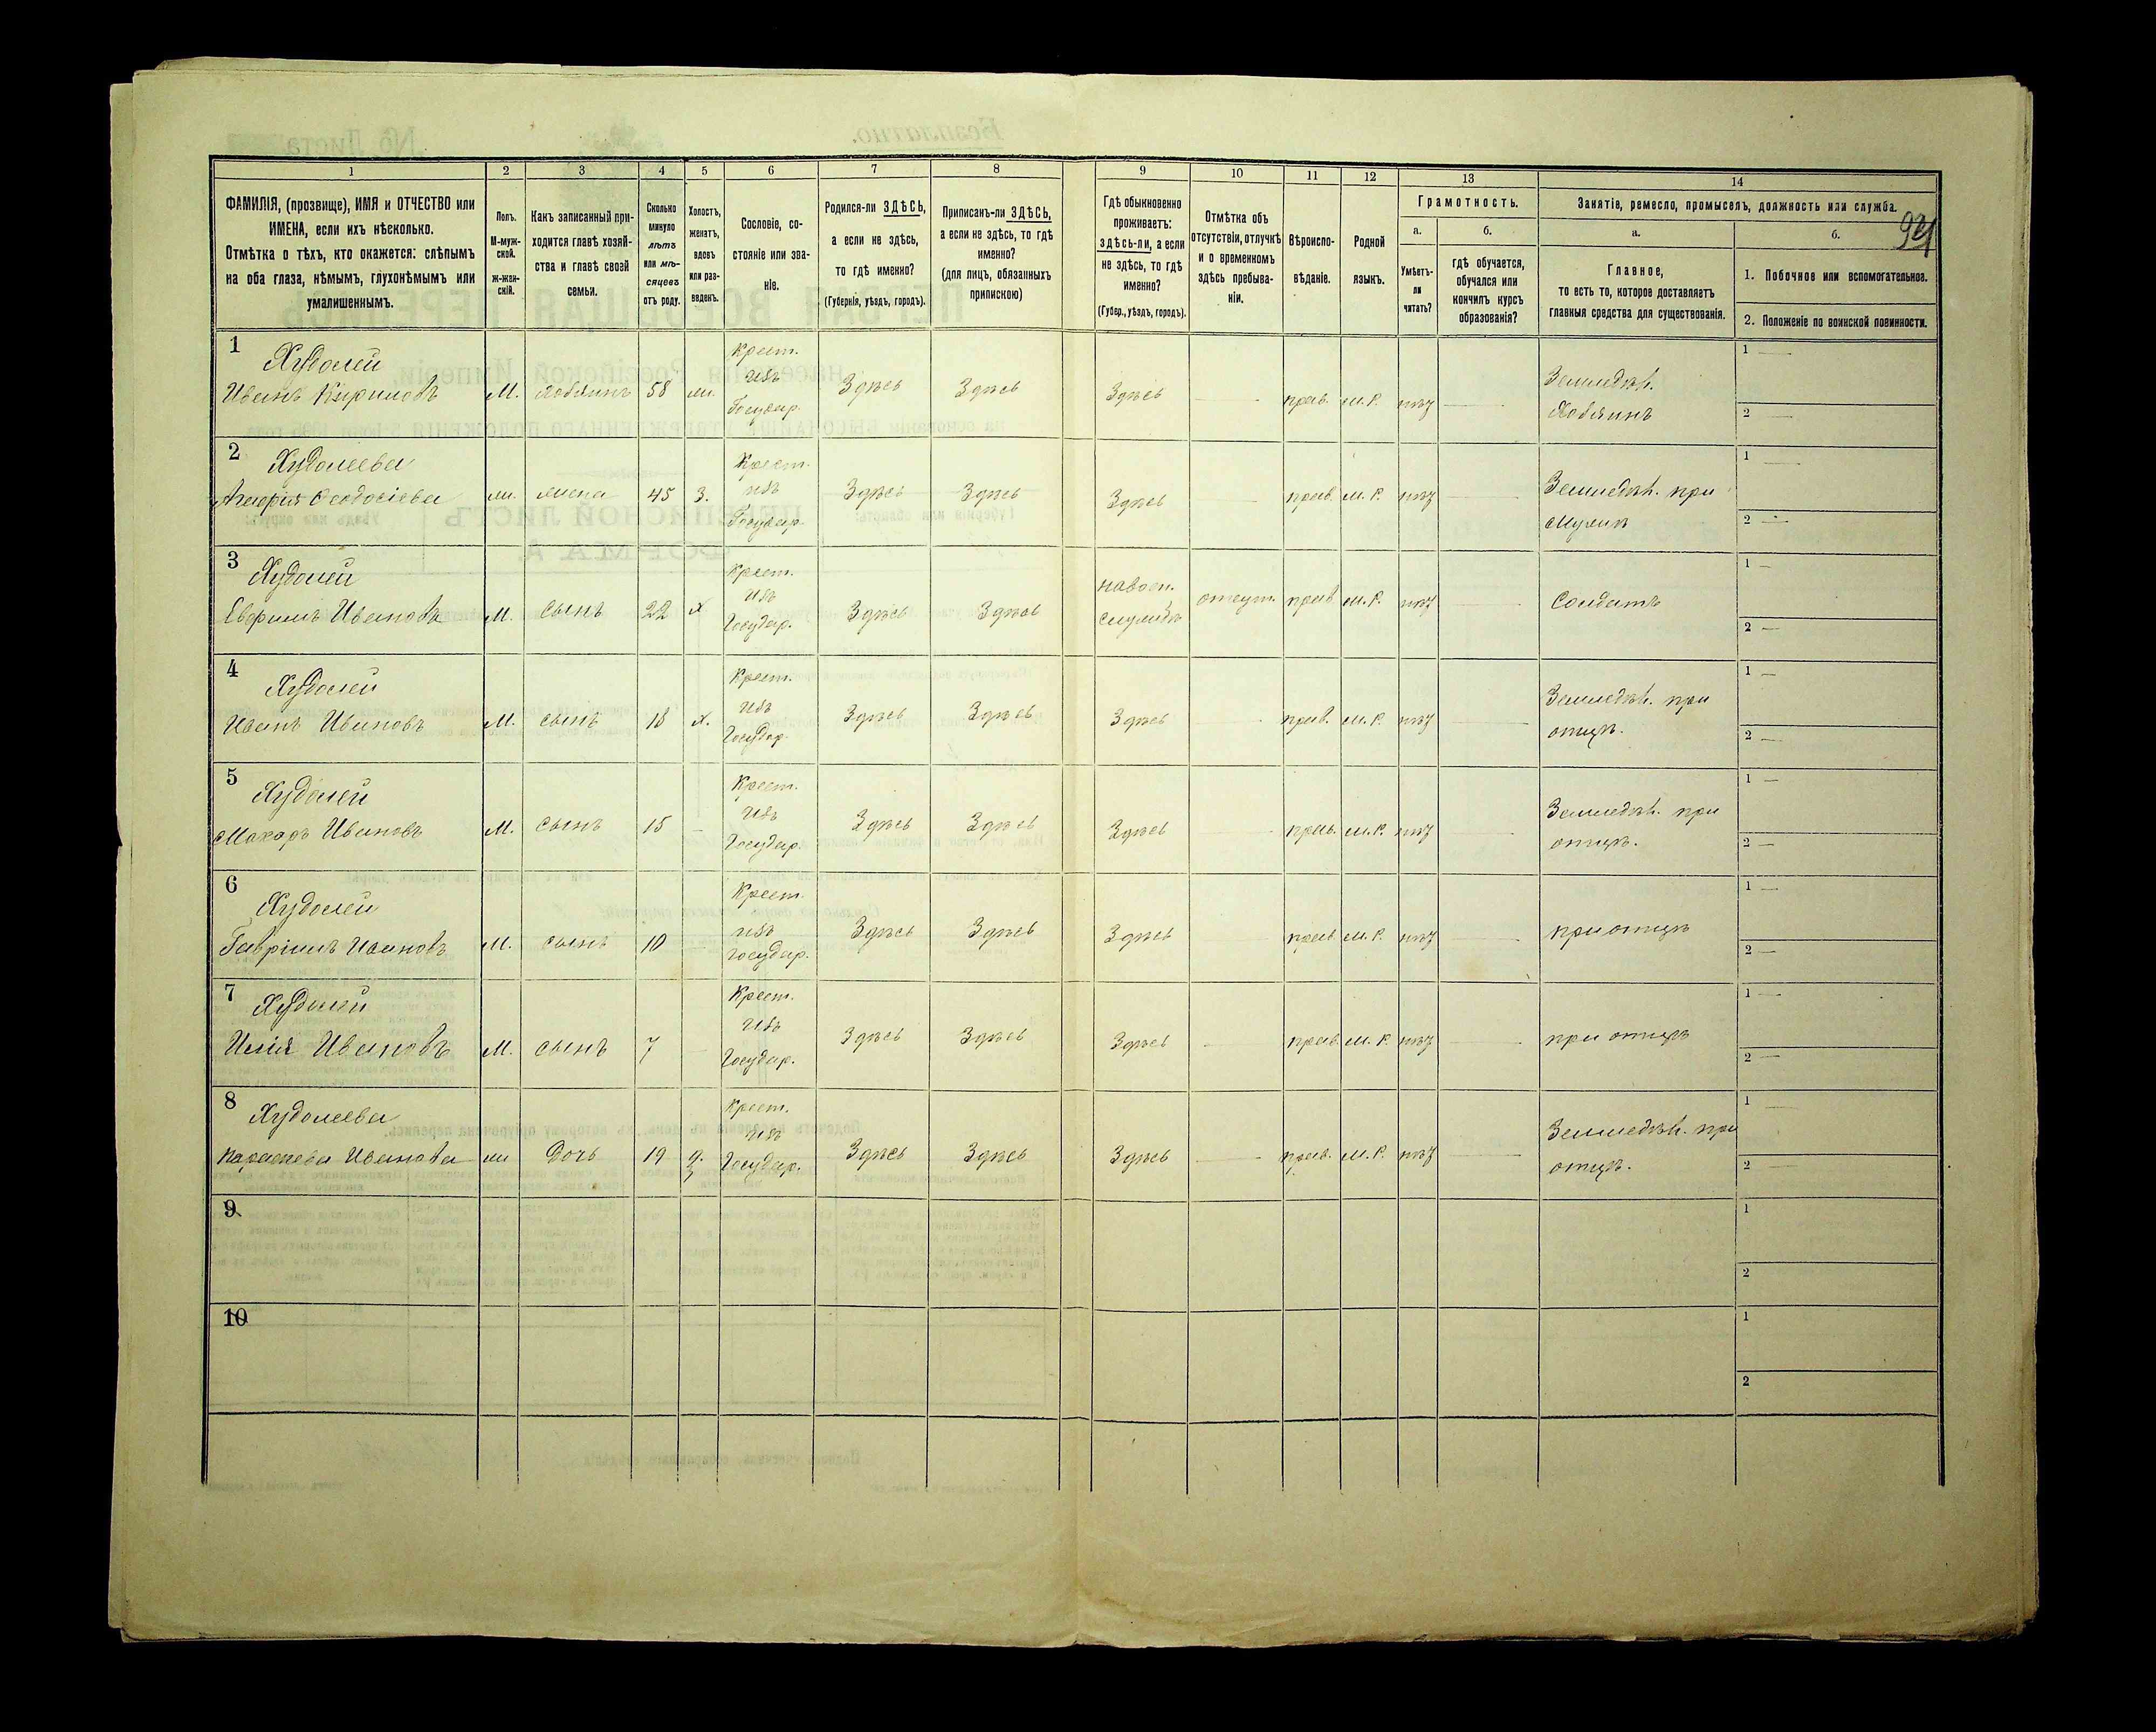 1 2 3 4 5 6 7 8 9 10 11 12 13 14
ФАМИЛІЯ, (прозвище), ИМЯ и ОТЧЕСТВО или
ИМЕНА, если ихъ нѣсколько.
Отмѣтка о тѣхъ, кто окажется: слѣпымъ
на оба глаза, нѣмымъ, глухонѣмымъ или
умалишеннымъ.
Полъ.
М-муж-
ской.
Ж-жен-
скій.
Какъ записанный при-
ходится главѣ хозяй-
ства и главѣ своей
семьи.
Сколько
минуло
лѣтъ
или мѣ-
сяцевъ
отъ роду.
Холостъ,
женатъ,
вдовъ
или раз-
веденъ.
Сословіе, со-
стояніе или зва-
ніе.
Родился-ли ЗДѢСЬ,
а если не здѣсь,
то гдѣ именно?
(Губернія, уѣздъ, городъ).
Приписанъ-ли ЗДѢСЬ,
а если не здѣсь, то гдѣ
именно?
(для лицъ, обязанныхъ
припискою)
Гдѣ обыкновенно
проживаетъ:
здѣсь-ли, а если
не здѣсь, то гдѣ
именно?
(Губер., уѣздъ, городъ).
Отмѣтка объ
отсутствіи, отлучкѣ
и о временномъ
здѣсь пребыва-
ніи.
Вѣроиспо-
вѣданіе.
Родной
языкъ.
Грамотность.
а.
Умѣетъ-
ли
читать?
б.
гдѣ обучается,
обучался или
кончилъ курсъ
образованія?
Занятіе, ремесло, промыселъ, должность или служба.
а.
Главное,
то есть то, которое доставляетъ
главныя средства для существованія.
б.
1. Побочное или вспомогательное.
2. Положеніе по воинской повинности.
1
Худолей
Иванъ Кириловъ М. хозяинъ 58 Здѣсь Здѣсь Здѣсь прав. м. р.
Крест.
изъ
Государ.
Земледѣл.
Хозяинъ
1
2
2
Худолеева
Феодосіева жена 45 З. Здѣсь Здѣсь Здѣсь прав. м. р.
Крест.
изъ
Государ.
Земледѣл. при
мужѣ
1
2
3
Худолей
Евфимъ Ивановъ М. сынъ 22 х Здѣсь Здѣсь отсут. прав. м. р.
Крест.
изъ
Государ.
Солдатъ
1
2
4
Худолей
Иванъ Ивановъ М. сынъ 18 х. Здѣсь Здѣсь Здѣсь прав. м. р.
Крест.
изъ
Государ.
Земледѣл. при
отцѣ.
1
2
5
Худолей
Макаръ Ивановъ М. сынъ 15 Здѣсь Здѣсь Здѣсь прав. м. р.
Крест.
изъ
Государ.
Земледѣл. при
отцѣ.
1
2
6
Худолей
Гавріилъ Ивановъ М. сынъ 10 Здѣсь Здѣсь Здѣсь прав. м. р.
Крест.
изъ
Государ.
при отцѣ
1
2
7
Худолей
Илія Ивановъ М. сынъ 7 Здѣсь Здѣсь Здѣсь прав. м. р.
Крест.
изъ
Государ.
при отцѣ
1
2
8
Худолеева
Параскева Иванова дочь 19 Здѣсь Здѣсь Здѣсь прав. м. р.
Крест.
изъ
Государ.
Земледѣл. при
отцѣ.
1
2
9
1
2
10
1
2